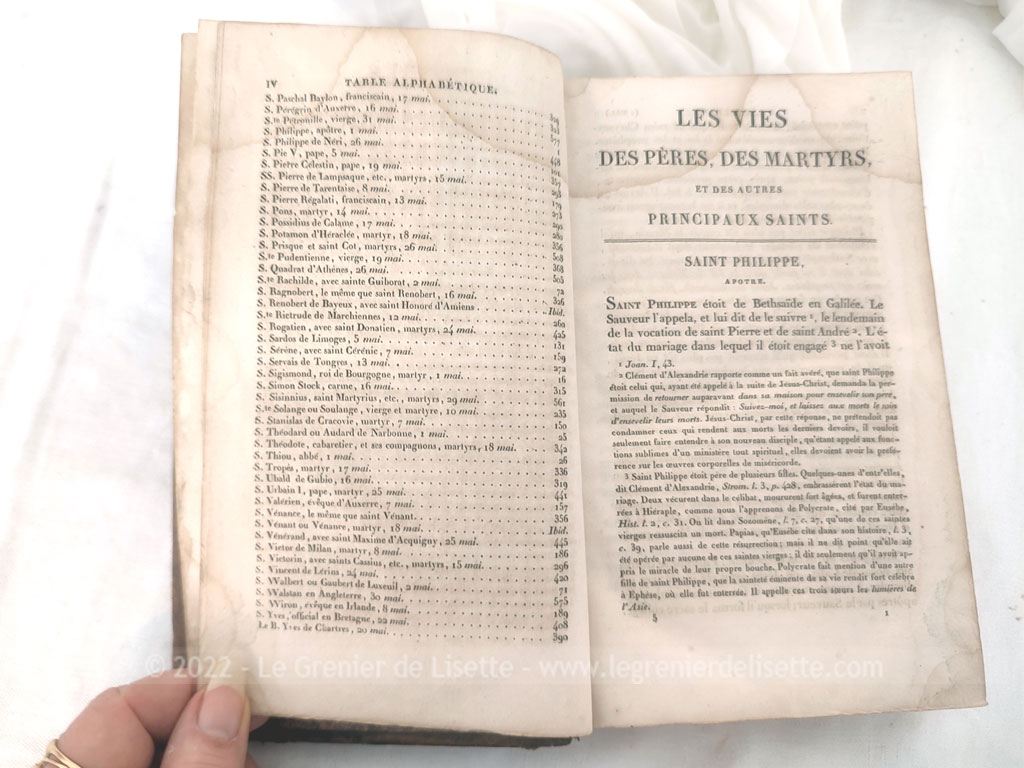 IV TABLE ALPHABÉTIQUE.
S. Paschal Baylon, franciscain, 17 mai.
S. Pérégrin d'Auxerre, 16 mai. 309
S.te Pétronille, vierge, 31 mai. 303
S. Philippe, apôtre, 1 mai. 577
S. Philippe de Néri, 26 mai.
S. Pie V, pape, 5 mai. 448
S. Pierre Célestin, pape, 19 mai.
SS. Pierre de Lampsaque, etc., martyrs, 15 mai. 357
S. Pierre de Tarentaise, 8 mai. 293
S. Pierre Régalati, franciscain, 13 mai. 179
S. Pons, martyr, 14 mai. 273
S. Possidius de Calame, 17 mai.
S. Potamon d'Héraclée, martyr, 18 mai.
S. Prisque et saint Cot, martyrs, 26 mai. 356
S.te Pudentienne, vierge, 19 mai. 508
S. Quadrat d'Athènes, 26 mai. 368
S.te Rachilde, avec sainte Guiborat, 2 mai. 505
S. Ragnobert, le même que saint Renobert, 16 mai. 72
S. Renobert de Bayeux, avec saint Honoré d'Amiens 326
S.te Rictrude de Marchiennes, 12 mai. Ibid.
S. Rogatien, avec saint Donatien, martyrs, 24 mai. 260
S. Sardos de Limoges, 5 mai. 425
S. Sérène, avec saint Cérénic, 7 mai. 131
S. Servais de Tongres, 13 mai. 159
S. Sigismond, roi de Bourgogne, martyr, 1 mai. 272
S. Simon Stock, carme, 16 mai. 16
S. Sisinnius, saint Martyrius, etc., martyrs, 29 mai. 315
S.te Solange ou Soulange, vierge et martyre, 10 mai. 561
S. Stanislas de Cracovie, martyr, 7 mai. 235
S. Théodard ou Audard de Narbonne, 1 mai. 150
S. Théodote, cabaretier, et ses compagnons, martyrs, 18 mai. 25
S. Thiou, abbé, 1 mai. 342
S. Tropès, martyr, 17 mai. 26
S. Ubald de Gubio, 16 mai. 336
S. Urbain I, pape, martyr, 25 mai. 319
S. Valérien, évêque d'Auxerre, 7 mai. 441
S. Vénance, le même que saint Vénant. 157
S. Vénant ou Vénance, martyr, 18 mai. 356
S. Vénérand, avec saint Maxime d'Acquigny, 25 mai. Ibid.
S. Victor de Milan, martyr, 8 mai. 445
S. Victorin, avec saints Cassius, etc., martyrs, 15 mai. 186
S. Vincent de Lérins, 24 mai. 296
S. Walbert ou Gaubert de Luxeuil, 2 mai. 420
S. Walstan en Angleterre, 30 mai. 71
S. Wiron, évêque en Irlande, 8 mai. 575
S. Yves, official en Bretagne, 22 mai. 189
Le B. Yves de Chartres, 20 mai. 408
390
LES VIES
DES PÈRES, DES MARTYRS,
ET DES AUTRES
PRINCIPAUX SAINTS.
SAINT PHILIPPE,
APOTRE.
SAINT PHILIPPE étoit de Bethsaïde en Galilée. Le
Sauveur l'appela, et lui dit de le suivre 1, le lendemain
de la vocation de saint Pierre et de saint André 2. L'é-
tat du mariage dans lequel il étoit engagé 3 ne l'avoit
1 Joan. I, 43.
2 Clément d'Alexandrie rapporte comme un fait avéré, que saint Philippe
étoit celui qui, ayant été appelé à la suite de Jésus-Christ, demanda la per-
mission de retourner auparavant dans sa maison pour ensevelir son père,
et auquel le Sauveur répondit : Suivez-moi, et laissez aux morts le soin
d'ensevelir leurs morts. Jésus-Christ, par cette réponse, ne prétendoit pas
condamner ceux qui rendent aux morts les derniers devoirs, il vouloit
seulement faire entendre à son nouveau disciple, qu'étant appelé aux fonc-
tions sublimes d'un ministère tout spirituel, elles devoient avoir la préfé-
rence sur les œuvres corporelles de miséricorde.
3 Saint Philippe étoit père de plusieurs filles. Quelques-unes d'entr'elles,
dit Clément d'Alexandrie, Strom. l. 3, p. 428, embrassèrent l'état du ma-
riage. Deux vécurent dans le célibat, moururent fort âgées, et furent enter-
rées à Hiéraple, comme nous l'apprenons de Polycrate, cité par Eusèbe,
Hist. l. 2, c. 31. On lit dans Sozomène, l. 7, c. 27, qu'une de ces saintes
vierges ressuscita un mort. Papias, qu'Eusèbe cite dans son histoire, l. 3,
c. 39, parle aussi de cette résurrection; mais il ne dit point qu'elle ait
été opérée par aucune de ces saintes vierges; il dit seulement qu'il avoit ap-
pris le miracle de leur propre bouche. Polycrate fait mention d'une autre
fille de saint Philippe, que la sainteté éminente de sa vie rendit fort célèbre
à Ephèse, où elle fut enterrée. Il appelle ces trois sœurs les lumières de
l'Asie.
5 1
© 2022 - Le Grenier de Lisette - www.legrenierdelisette.com